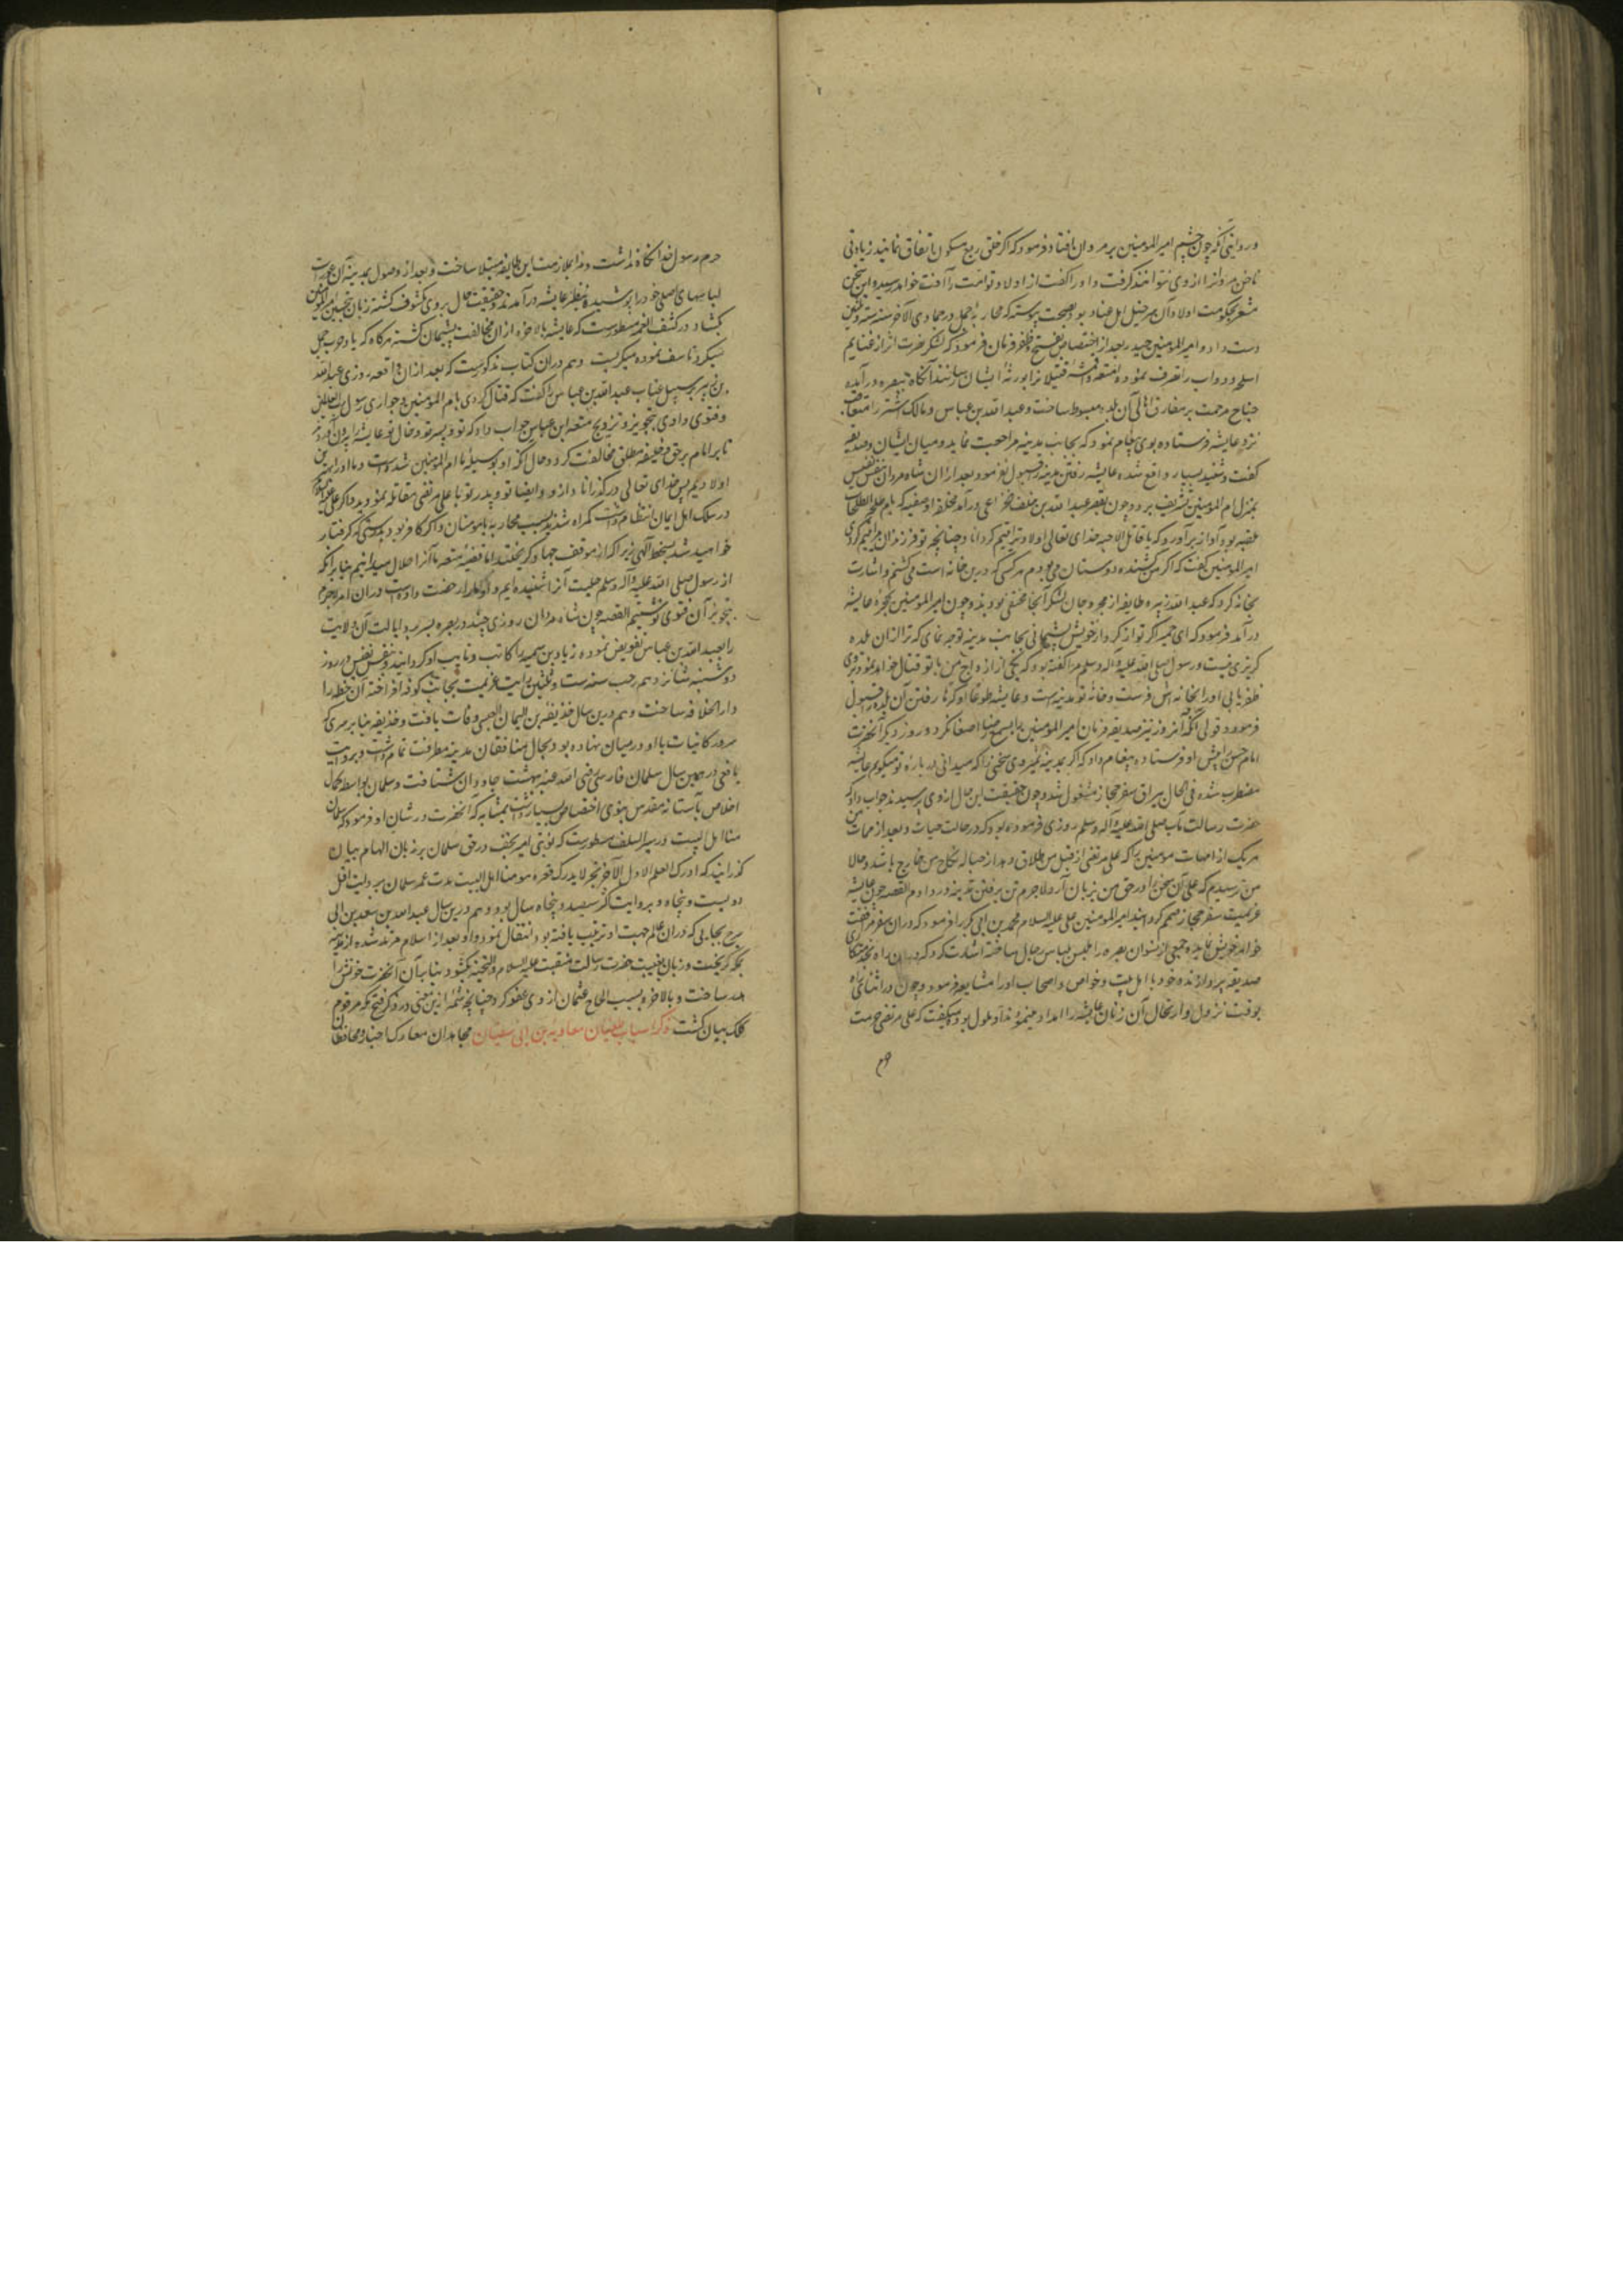 و روایتی آنکه چون چشم امیر المومنین بر مروان افتاد فرمود که اگر خلق ربع مسکون اتفاق نمایند زیادتی
ناخن مروان از وی نتوانند گرفت و او را گفت از اولاد تو امت را آفت خواهد رسید و این سخن
مشعر بحکومت اولاد آن سرخیل اهل عناد بود بصحت پیوسته که محاربه جمل در جمادی الآخر سنه ست و ثلثین
دست داد و امیر المومنین حیدر بعد از اختصاص بفتح و ظفر فرمان فرمود که لشکر نصرت اثر از غنایم
اسلحه و دواب را تصرف نموده امتعه و اقمشه قتیلان را بورثه ایشان رسانند آنگاه ببصره درآمده
جناح مرحمت بر مفارق اهالی آن بلده مبسوط ساخت و عبد الله بن عباس و مالک اشتر را متعاقب
نزد عایشه فرستاده بوی پیغام نمود که بجانب مدینه مراجعت نماید و میان ایشان و صدیقه
گفت و شنید بسیار واقع شده عایشه رفتن مدینه قبول نفرمود بعد از ان شاه مردان بنفس نفیس
بمنزل ام المومنین تشریف برد و چون بقصر عبد الله بن خلف خزاعی درآمد مخلفه او صفیه که بام طلحة الطلحات
ملقبه بود آواز برآورد که یا قاتل الاحبه خدای تعالی اولاد ترا یتیم گرداناد چنانچه تو فرزندان مرا یتیم کردی
امیر المومنین گفت که اگر من کشنده دوستان می بودم هر کس که درین خانه است می کشتم و اشارت
بخانه کرد که عبد الله زبیر با طایفه از مجروحان لشکر آنجا مخفی بودند و چون امیر المومنین بحجره عایشه
درآمد فرمود که ای حمیرا اگر تو از کردار خویش پشیمانی بجانب مدینه توجه نمای که ترا از ان بلده
گریزی نیست و رسول صلی الله علیه و آله وسلم مرا گفته بود که یکی از ازواج من با تو قتال خواهد نمود و تو بروی
ظفر یابی او را بخانه اش فرست و خانه تو مدینه است و عایشه طوعا او کرها رفتن آن بلده قبول
فرمود و قولی آنکه آن روز نیز صدیقه فرمان امیر المومنین را بسمع رضا اصغا نکرد و روز دیگر آنحضرت
امام حسن را پیش او فرستاده پیغام داد که اگر بمدینه نمیروی سخنی را که میدانی در باره تو میگویم عایشه
مضطرب شده فی الحال بیراق سفر حجاز مشغول شد و چون حقیقت این حال از وی پرسیدند جواب داد که
حضرت رسالت مآب صلی الله علیه و آله وسلم روزی فرموده بود که در حالت حیات و بعد از ممات من
هر یک از امهات مومنین را که علی مرتضی از قبل من طلاق دهد از حباله نکاح من خارج باشد و حالا
من ترسیدم که علی آن سخن را در حق من بزبان آرد لاجرم تن برفتن مدینه در دادم القصه چون عایشه
عزیمت سفر حجاز مصمم گردانید امیر المومنین علی علیه السلام محمد بن ابی بکر را فرمود که در ان سفر مرافقت
خواهر خویش نماید و جمعی از نسوان بصره را ملبس بلباس رجال ساخته اشارت کرد که در ان راه بخدمتکاری
صدیقه پردازند و خود با اهل بیت و خواص و اصحاب او را مشایعه فرمود و چون در اثنای راه
بوقت نزول و ارتحال آن زنان عایشه را امداد مینمودند او ملول بوده میگفت که علی مرتضی حرمت
حرم رسول خدا نگاه نداشت و مرا بملازمت این طایفه مبتلا ساخت و بعد از وصول بمدینه آن عورات
لباسهای اصلی خود را پوشیده بنظر عایشه درآمدند و حقیقت حال بر وی مکشوف گشته زبان بتحسین امیر المومنین
بگشاد و در کشف الغمه مسطور است که عایشه بالاخره از ان مخالفت پشیمان گشته هر گاه که یاد حرب جمل
میکرد تاسف نموده میگریست و هم در ان کتاب مذکور است که بعد از ان واقعه روزی عبد الله
بن زبیر بر سبیل عتاب عبد الله بن عباس را گفت که قتال کردی با ام المومنین و حواری رسول رب العالمین
و فتوی دادی بتجویز و تزویج متعه ابن عباس جواب داد که تو و پسر تو و خال تو عایشه را بیرون آوردند
تا بر امام بر حق و خلیفه مطلق مخالفت کرد و حال آنکه او بوسیله ما ام المومنین شده است و ما او را بهترین
اولادیم پس خدای تعالی در گذراناد از و و ایضا تو و پدر تو با علی مرتضی مقاتله نمودید و اگر علی علیه السلام
در سلک اهل ایمان انتظام داشت گمراه شدید بسبب محاربه با مومنان و اگر کافر بود بدرستی که گرفتار
خواهید شد بسخط الهی زیرا که از موقف جهاد گریختید اما قضیه متعه ما آنرا حلال میدانیم بنا بر آنکه
از رسول صلی الله علیه و آله وسلم حلیت آنرا شنیده ایم و او ما را رخصت داده است در ان امر لاجرم
بتجویز آن فتوی نوشتیم القصه چون شاه مردان روزی چند در بصره بسر برد ایالت آن ولایت
را بعبد الله بن عباس تفویض نموده زیاد بن سمیه را کاتب و نایب او گردانید و بنفس نفیس در روز
دوشنبه شانزدهم رجب سنه ست و ثلثین رایت عزیمت بجانب کوفه افراخته آن خطه را
دار الخلافه ساخت و هم درین سال حذیفه بن الیمان العبسی وفات یافت و حذیفه بنا بر سری که
سرور کاینات با او در میان نهاده بود بحال منافقان مدینه معرفت تمام داشت و بروایت
یافعی در همین سال سلمان فارسی رضی الله عنه ببهشت جاودان شتافت و سلمان بواسطه کمال
اخلاص بآستانه مقدس نبوی اختصاص بسیار داشت بمثابه که آنحضرت در شان او فرمود که سلمان
منا اهل البیت و در سیر السلف مسطور است که نوبتی امیر نجف در حق سلمان بر زبان الهام بیان
گذرانید که ادرک العلم الاول و الآخر بحر لا یدرک قعره هو منا اهل البیت مدت عمر سلمان بروایت اقل
دویست و پنجاه و بروایت اکثر سیصد و پنجاه سال بود و هم درین سال عبد الله بن سعد بن ابی
سرح بجایی که در ان عالم جهت او ترتیب یافته بود انتقال نمود و او بعد از اسلام مرتد شده از مدینه
بمکه گریخت و زبان بغیبت حضرت رسالت منقبت علیه السلام و التحیه بگشود بنا بر آن آنحضرت خونش را
هدر ساخت و بالاخره بسبب الحاح عثمان از وی عفو کرد چنانچه شمه ازین معنی در ذکر فتح مکه مرقوم
کلک بیان گشت ذکر اسباب طغیان معاویه بن ابی سفیان مجاهدان معارک اخبار و محافظان